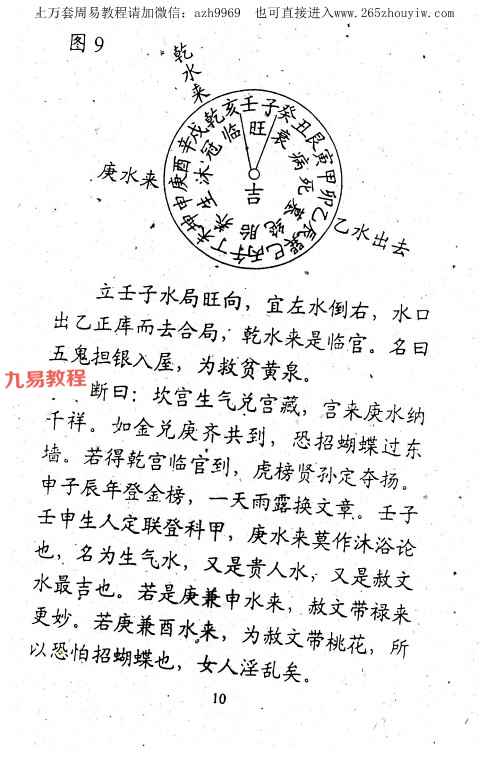 上万套周易教程请加微信：azh9969 也可直接进入www.265zhouyiw.com
图9
乾水来
亥壬子癸丑艮寅甲卯乙辰巽巳丙午丁未坤申庚酉辛戌乾
旺衰病死墓绝胎养生沐冠临
吉
庚水来
乙水出去
立壬子水局旺向，宜左水倒右，水口
出乙正库而去合局，乾水来是临官。名曰
五鬼担银入屋，为救贫黄泉。
九易教程
断曰：坎宫生气兑宫藏，宫来庚水纳
千祥。如金兑庚齐共到，恐招蝴蝶过东
墙。若得乾宫临官到，虎榜贤孙定夺扬。
申子辰年登金榜，一天雨露换文章。壬子
壬申生人定联登科甲，庚水来莫作沐浴论
也，名为生气水，又是贵人水，又是赦文
水最吉也。若是庚兼申水来，赦文带禄来
更妙。若庚兼酉水来，为赦文带桃花，所
以恐怕招蝴蝶也，女人淫乱矣。
10